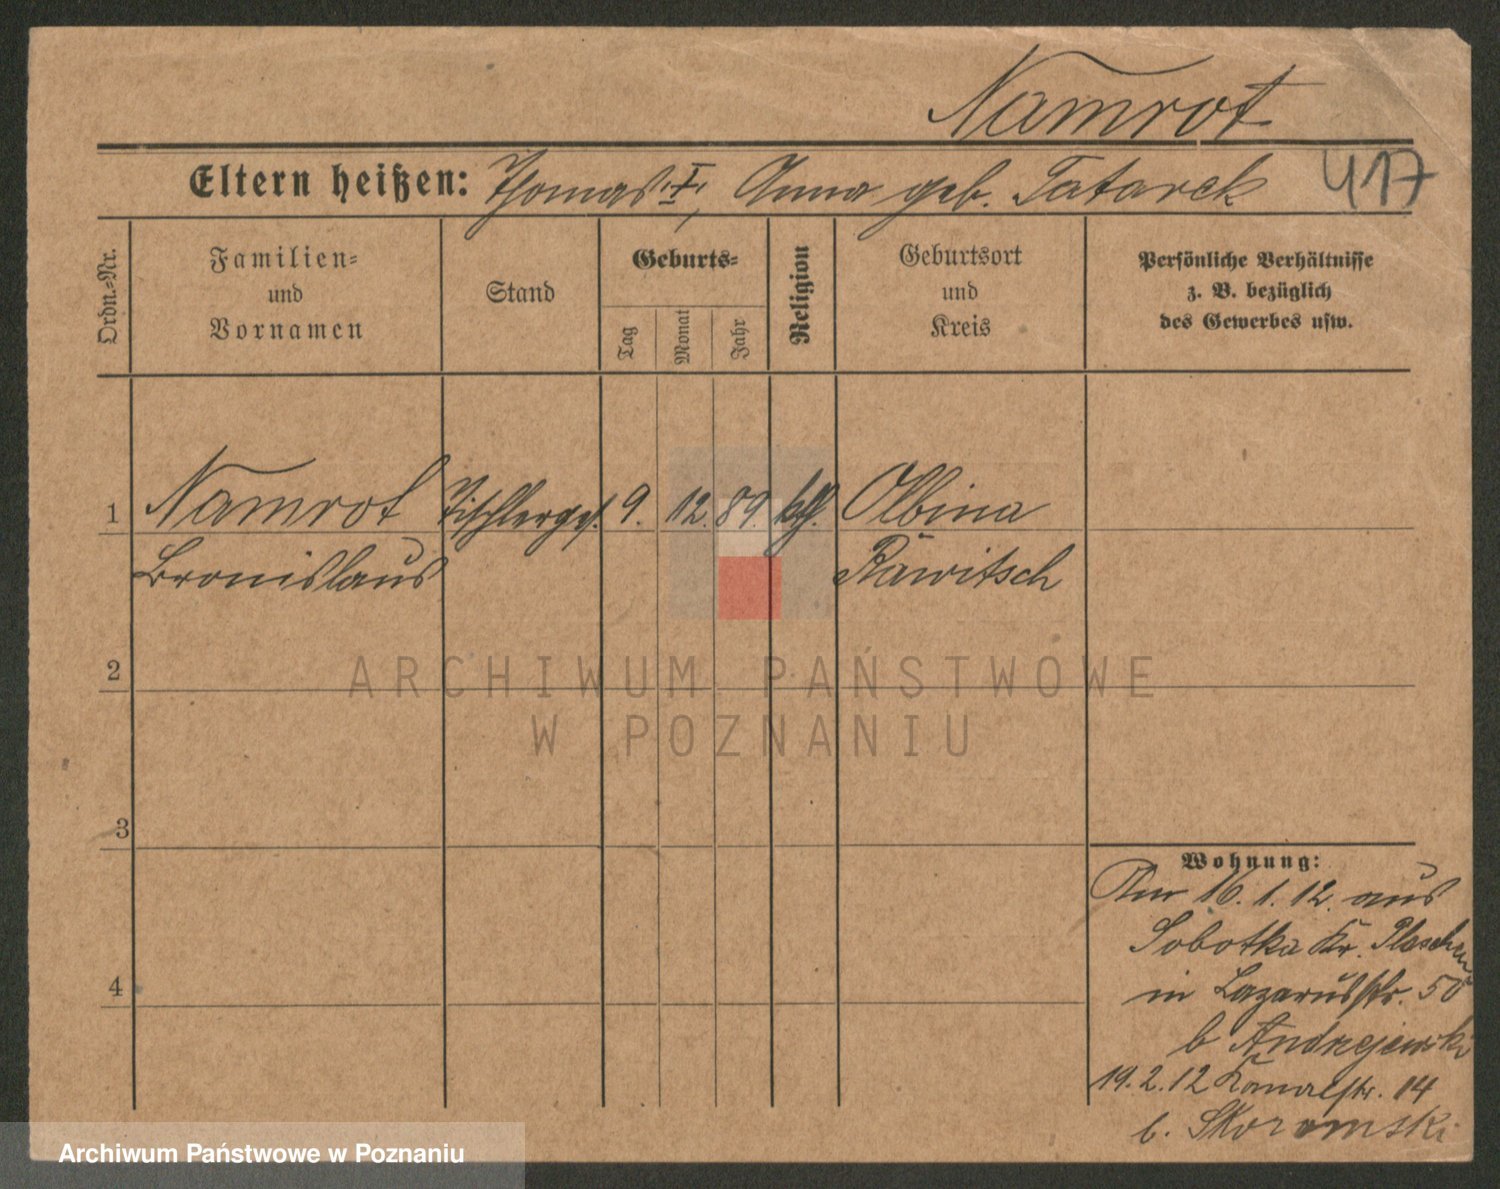 Namrot
417
Eltern heißen: Thomas †, Anna geb. Tatarek
Ordn.-Nr.
Familien-
und
Vornamen
Stand
Geburts-
Tag
Monat
Jahr
Religion
Geburtsort
und
Kreis
Persönliche Verhältnisse
z. B. bezüglich
des Gewerbes usw.
1 Namrot Tischlerges. 9. 12. 89. kth. Olbina
Bronislaus Rawitsch
2
3
4
Wohnung:
Am 16. 1. 12. aus
Sobotka Kr. Pleschen
in Lazarusstr. 50
b Andrzejewski
19. 2. 12 Kanalstr. 14
b. Skoramski
ARCHIWUM PAŃSTWOWE
W POZNANIU
Archiwum Państwowe w Poznaniu